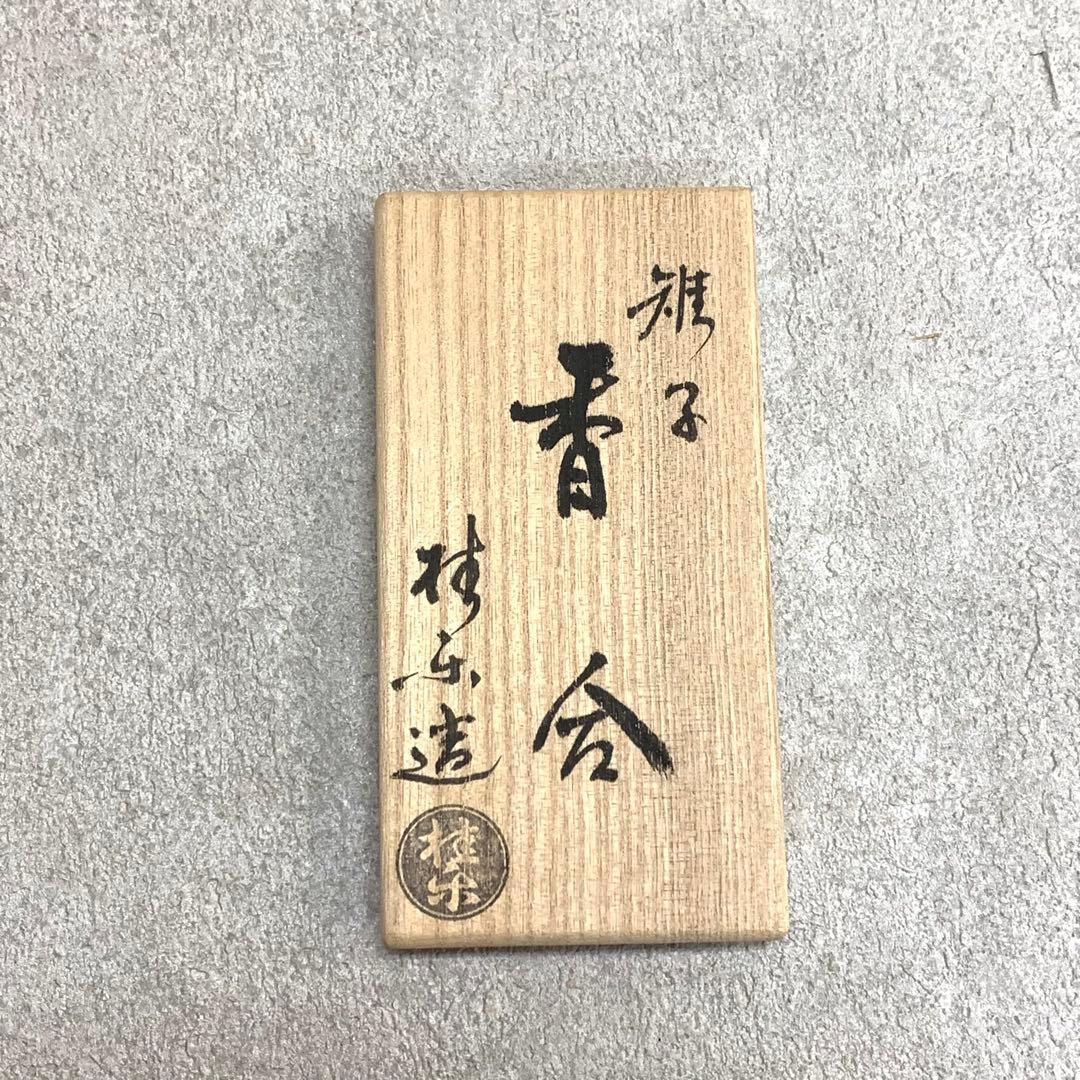 雉子
香合
桂楽造
桂楽